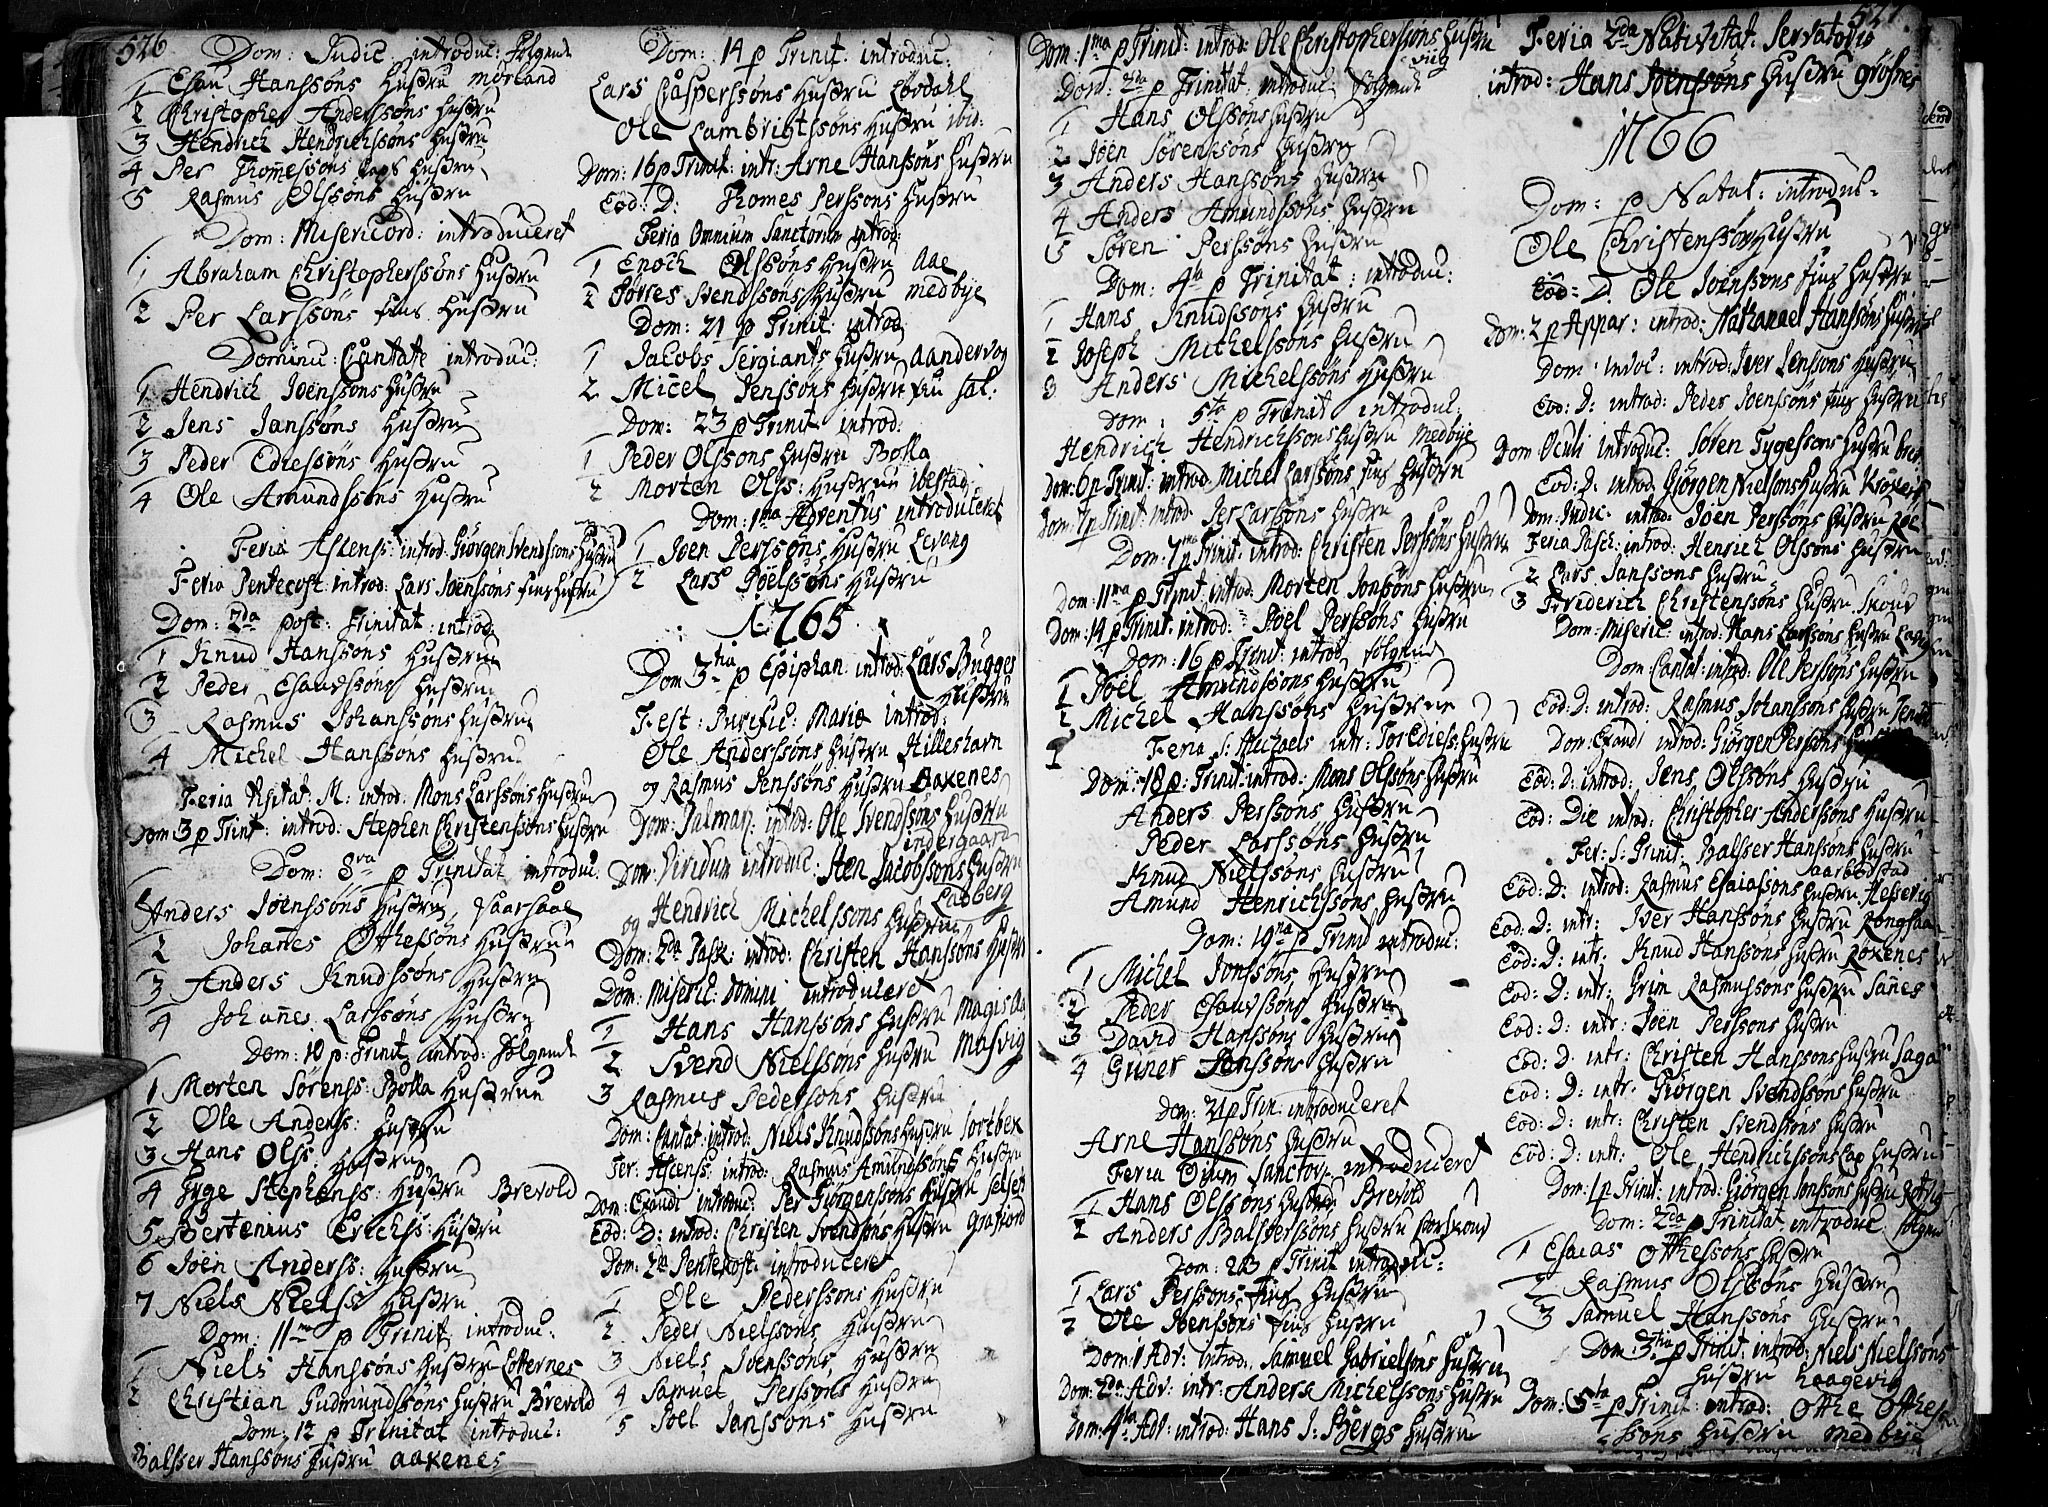 526
Dom: Judic: introduc: følgende
1 Esau Hanssøns Hustru Morland
2 Christopher Anderssøns Hustru
3 Hendrich Hendrichssøns Hustru
4 Per Thomessøns Hustru
5 Rasmus Olssøns Hustru
Dom: Misericord: introduceret
1 Abraham Christopherssøns Hustru
2 Per Larssøns fins Hustru
Dominic: Cantate introduc:
1 Hendrich Joenssøns Hustru
2 Jens Janssøns Hustru
3 Peder Ediessøns Hustru
4 Ole Amundssøns Hustru
Feria Ascens: introd: Giørgen Svendssøns Hustru
Feria Pentecost: introd: Lars Joenssøns fins Hustru
Dom: 2da post: Trinitat: introd:
1 Knud Hanssøns Hustru
2 Peder Esauvssøns Hustru
3 Rasmus Johanssøns Hustru
4 Michel Hanssøns Hustru
Feria Visitat: M: introd: Mons Larssøns Hustru
Dom 3 p Trint: introd: Stephen Christenssøns Hustru
Dom: 8va p Trinitat introduc:
Anders Joenssøns Hustru
2 Johannes Othessøns Hustru
3 Anders Knudssøns Hustru
4 Johannes Larssøns Hustru
Dom: 10 p: Trinit: introd: følgende
1 Morten Sørenss: Bolla Hustrue
2 Ole Anderss: Hustru
3 Hans Olss: Hustru
4 Tyge Stephenss: Hustru Brevold
5 Bertenius Erichss: Hustru
6 Joen Anderss: Hustru
7 Niels Nielss: Hustru
Dom: 11ma p Trinit: introduc:
1 Niels Hanssøns Hustru
2 Christian Gudmundssøns Hustru Brevold
Dom: 12 p Trinitat introduc:
Balsser Hanssøns Hustru Aakenes
Dom: 14 p Trinit: introduc:
Lars Casperssøns Hustru Løvdahl
Ole Lambrigtssøns Hustru ibid:
Dom: 16 p Trinit: intr: Arne Hanssøns Hustru
Eod: D: Thomes Perssøns Hustru
Feria Omnium Sanctorum introd:
1 Enoch Olssøns Hustru Aae
2 Torres Svendssøns Hustru Medbye
Dom: 21 p Trinit: introd:
1 Jacobs Sergiants Hustru
2 Micel Jenssøns Hustru
Dom: 23 p Trinit: introd:
1 Peder Olssøns Hustru Bolla
2 Morten Olss: Hustrue Ibestad
Dom: 1ma Adventus introduceret
1 Joen Perssøns Hustru Levang
2 Lars Joelssøns Hustru
1765
Dom 3tia p Epiphan: introd: Lars Bugges
Hustru
Fest: Purific: Mariæ introd:
Ole Anderssøns Hustru Hilleshavn
og Rasmus Jenssøns Hustru Aakenes
Dom: Palmar: introd: Ole Svendssøns Hustru
indergaard
Dom: Viridum introduc: Sten Jacobssøns Hustru
og Hendrich Michelssøns Hustru Ladberg
Dom: 2da Pask: introd: Christen Hanssøns Hustru
Dom: Miseric: Domini introduceret
1 Hans Hanssøns Hustru
2 Svend Nielssøns Hustru Masvig
3 Rasmus Pederssøns Hustru
Dom: Cantat: introd: Niels Knudssøns Hustru
Fer: Ascens: introd: Rasmus Amundssøns Hustru
Dom: Exaudi introduc: Per Giørgenssøns Hustru
Eod: D: introd: Christen Svendssøns Hustru Grafiord
Dom: 2da Pentecost: introduceret
1 Ole Pederssøns Hustru
2 Peder Nielssøns Hustru
3 Niels Joenssøns Hustru
4 Samuel Perssøns Hustru
5 Joel Janssøns Hustru
527
Dom: 1ma p Trinit: introd: Ole Christopherssøns Hustru
viig
Dom: 2da p Trinitat: introduc følgende
1 Hans Olssøns Hustru
2 Joen Sørenssøns Hustru
3 Anders Hanssøns Hustru
4 Anders Amundssøns Hustru
5 Søren Perssøns Hustru
Dom: 4ta p Trinitat: introduc:
1 Hans Knudssøns Hustru
2 Joseph Michelssøns Hustru
3 Anders Michelssøns Hustru
Dom: 5ta p Trinit introduc:
Hendrich Hendrichssøns Hustru Medbye
Dom: 6 p Trinit: introd: Michel Larssøns fins Hustru
Dom: 7 p Trinit: introd: Per Larssøns Hustru
Dom: 7ma p Trinit: introd: Christen Perssøns Hustru
Dom: 11ma p Trinit: introd: Morten Jonssøns Hustru
Dom: 14 p Trinit: introd: Joel Perssøns Hustru
Dom: 16 p Trinit: introd: følgende
1 Joel Amundssøns Hustru
2 Michel Hanssøns Hustrue
Feria S: Michaels intr: Tor Ediess: Hustru
Dom: 18 p: Trinit: introd: Mons Olssøns Hustru
Anders Perssøns Hustru
Peder Larssøns Hustru
Knud Nielssøns Hustru
Amund Henrichssøns Hustru
Dom: 19na p Trinit introduc:
1 Michel Jonssøns Hustru
2 Peder Esauvssøns Hustru
3 David Hanssøns Hustru
4 Guner Hanssøns Hustru
Dom: 21 p Trin: introduceret
Arne Hanssøns Hustru
Feria Omn: Sanctor: introduceret
1 Hans Olssøns Hustru Brevold
2 Anders Balsserssøns Hustru
Dom: 23 p Trinit introduc:
1 Lars Perssøns fins Hustru
2 Ole Joenssøns fins Hustru
Dom: 1 Adv: introd: Samuel Gabrielssøns Hustru
Dom: 2da Adv: intr: Anders Michelssøns Hustru
Dom: 4ta Adv: introd: Hans J: Bergs Hustru
Feria 2da Nativitat: Servatoris
introd: Hans Joenssøns Hustru Grøsnes
1766
Dom: p Natal: introduc:
Ole Christenssøns Hustru
Eod: D. Ole Joenssøns fins Hustru
Dom: 2 p Appar: introd: Nathanael Hanssøns Hustru
Dom: Invoc: introd: Iver Jenssøns Hustru
Eod: D: introd: Peder Joenssøns fins Hustru
Dom: Oculi introduc: Søren Tygessøns Hustru
Eod: D: introd: Giørgen Nielssøns Hustru
Dom: Judic: introd: Joen Perssøns Hustru
Feria Pasch: introd: Henrich Olssøns Hustru
2 Lars Janssøns Hustru
3 Friderich Christenssøns Hustru
Dom: Miseric: introd: Hans Larssøns Hustru
Dom: Cantat: introd: Ole Perssøns Hustru
Eod: D: introd: Rasmus Johanssøns Hustru
Dom: Exaudi introd: Giørgen Perssøns
Eod: D: introd: Jens Olssøns Hustru
Eod: Die introd: Christopher Anderssøns Hustru
Fer: S: Trinit: Balsser Hanssøns Hustru
Eod: D: introd: Rasmus Esaiassøns Hustru
Eod: D: intr: Iver Hanssøns Hustru
Eod: D: intr: Knud Hanssøns Hustru Røkenes
Eod: D: intr: Grim Rasmussøns Hustru
Eod: D: intr: Joen Perssøns Hustru
Eod: D: intr: Christen Hanssøns Hustru Saga
Eod: D: intr: Giørgen Svendssøns Hustru
Eod: D: intr: Christen Svendssøns Hustru
Eod: D: intr: Ole Hendrichssøns Lap Hustru
Dom: 1 p Trinit: introd: Giørgen Jonssøns Hustru
Dom: 2da p Trinitat introduc
1 Esaias Othessøns Hustru
2 Rasmus Olssøns Hustru
3 Samuel Hanssøns Hustru
Dom: 3tia p Trinit: introd: Niels Nielssøns
Hustru Haagevig
Dom: 5ta p Trinit: introd: Othe Othes
søns Hustru Medbye